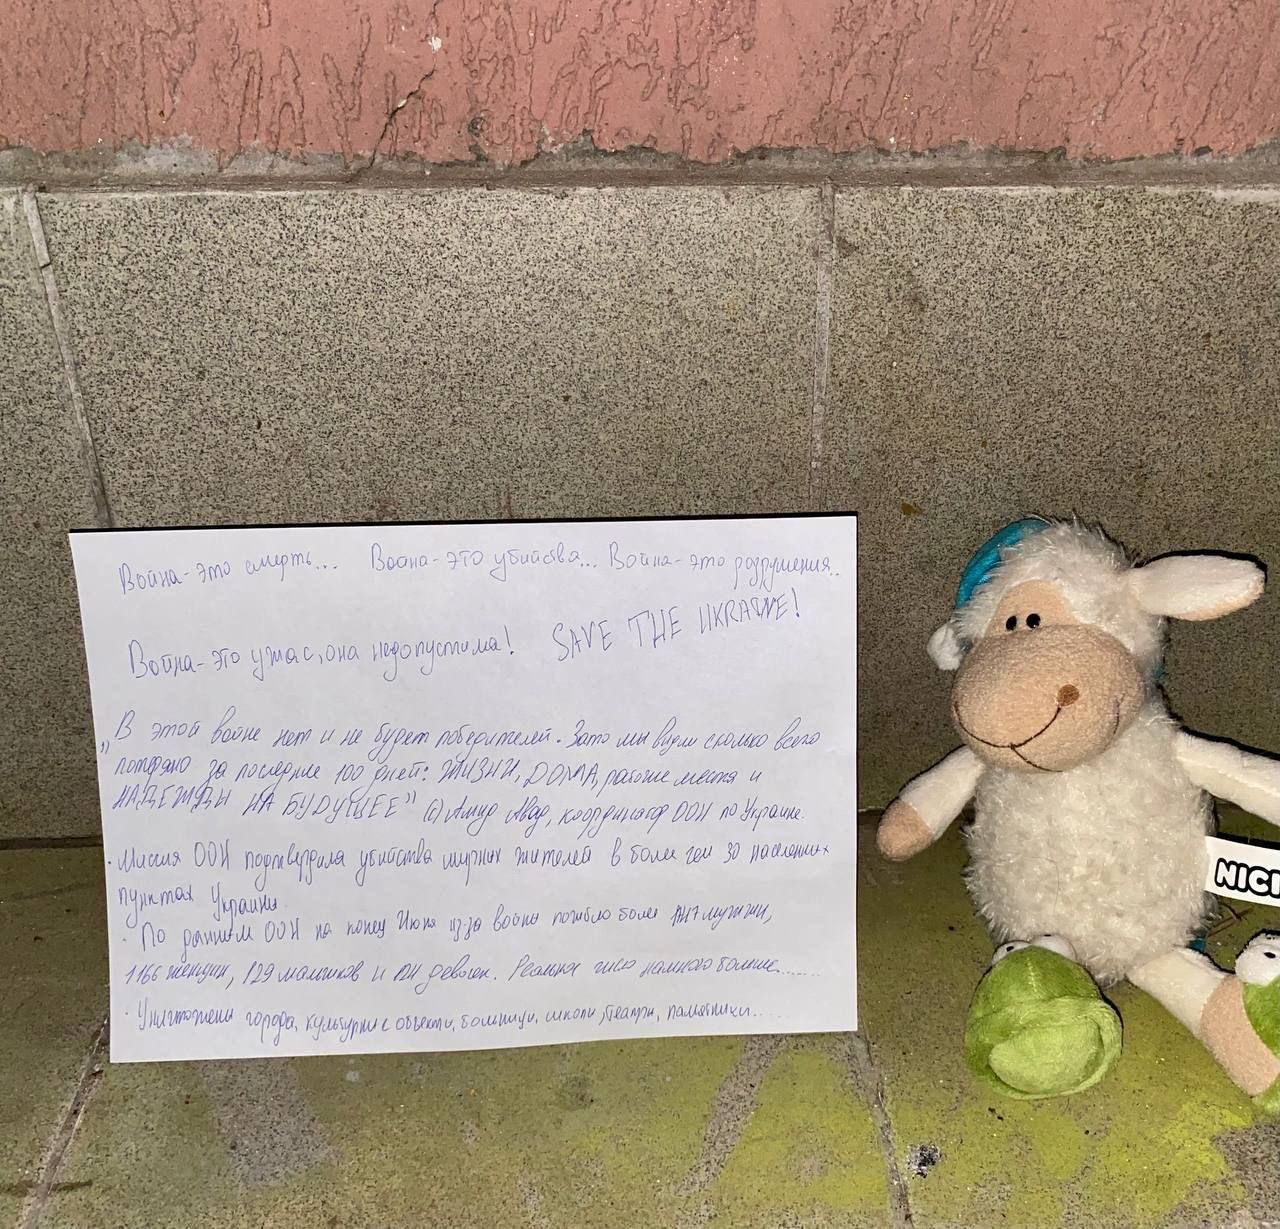 Война-это смерть... Война-это убийства... Война-это разрушения..
Война-это ужас, она недопустима! SAVE THE UKRAINE!
„В этой войне нет и не будет победителей. Зато мы видим сколько всего
потеряно за последние 100 дней: ЖИЗНИ, ДОМА, рабочие места и
НАДЕЖДЫ НА БУДУЩЕЕ" (с) Амид Авад, координатор ООН по Украине.
· Миссия ООН подтвердила убийства мирных жителей в более чем 30 населенных
пунктах Украины.
· По данным ООН на конец Июня из-за войны погибло более мужчин,
1166 женщин, 129 мальчиков и девочек. Реальное число намного больше.......
· Уничтожены города, культурные объекты, больницы, школы, театры, памятники.....
NICI